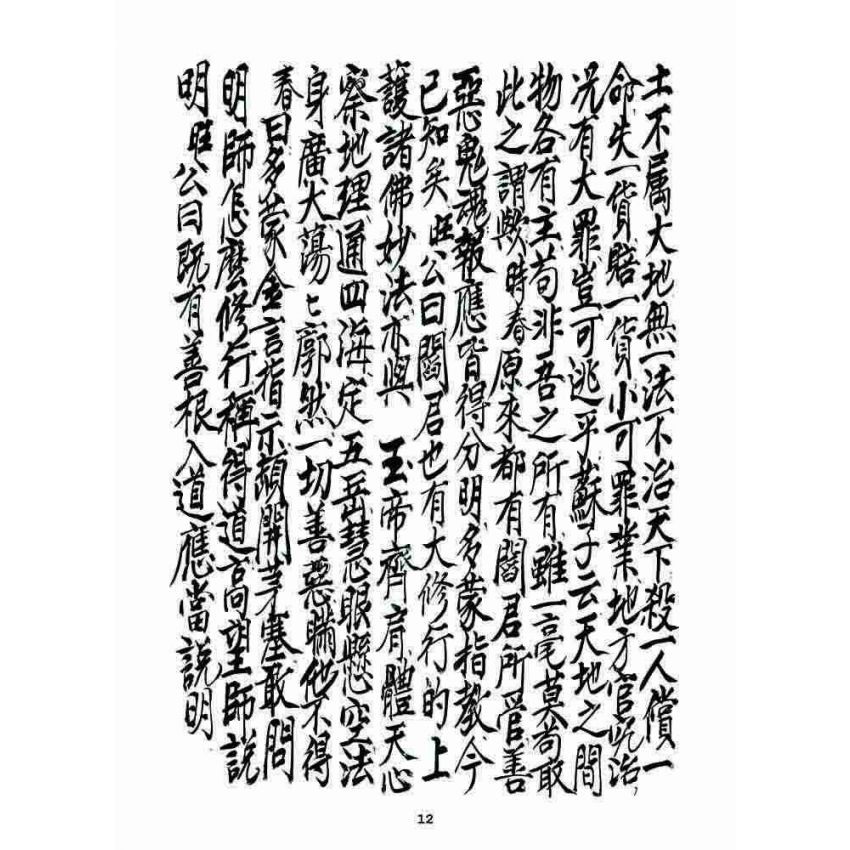 土不属大地無一法不治天下殺一人償一
命失一貨賠一貨小可罪業地方官究治,
况有大罪豈可逃乎蘇子云天地之間
物各有主苟非吾之所有雖一毫莫苟取
此之謂歟時春原來都有閻君所管善
惡鬼魂報應皆得分明多蒙指教今
已知矣 旺公曰閻君也有大修行的上
護諸佛妙法亦與 玉帝齊肩體天心
察地理通四海定五岳慧眼懸空法
身廣大蕩ヒ廓然一切善惡瞞他不得
春曰多蒙金言指示頗開茅塞敢問
明師怎麽修行稱得道高望師説
明 旺公曰既有善根入道應當説明
12